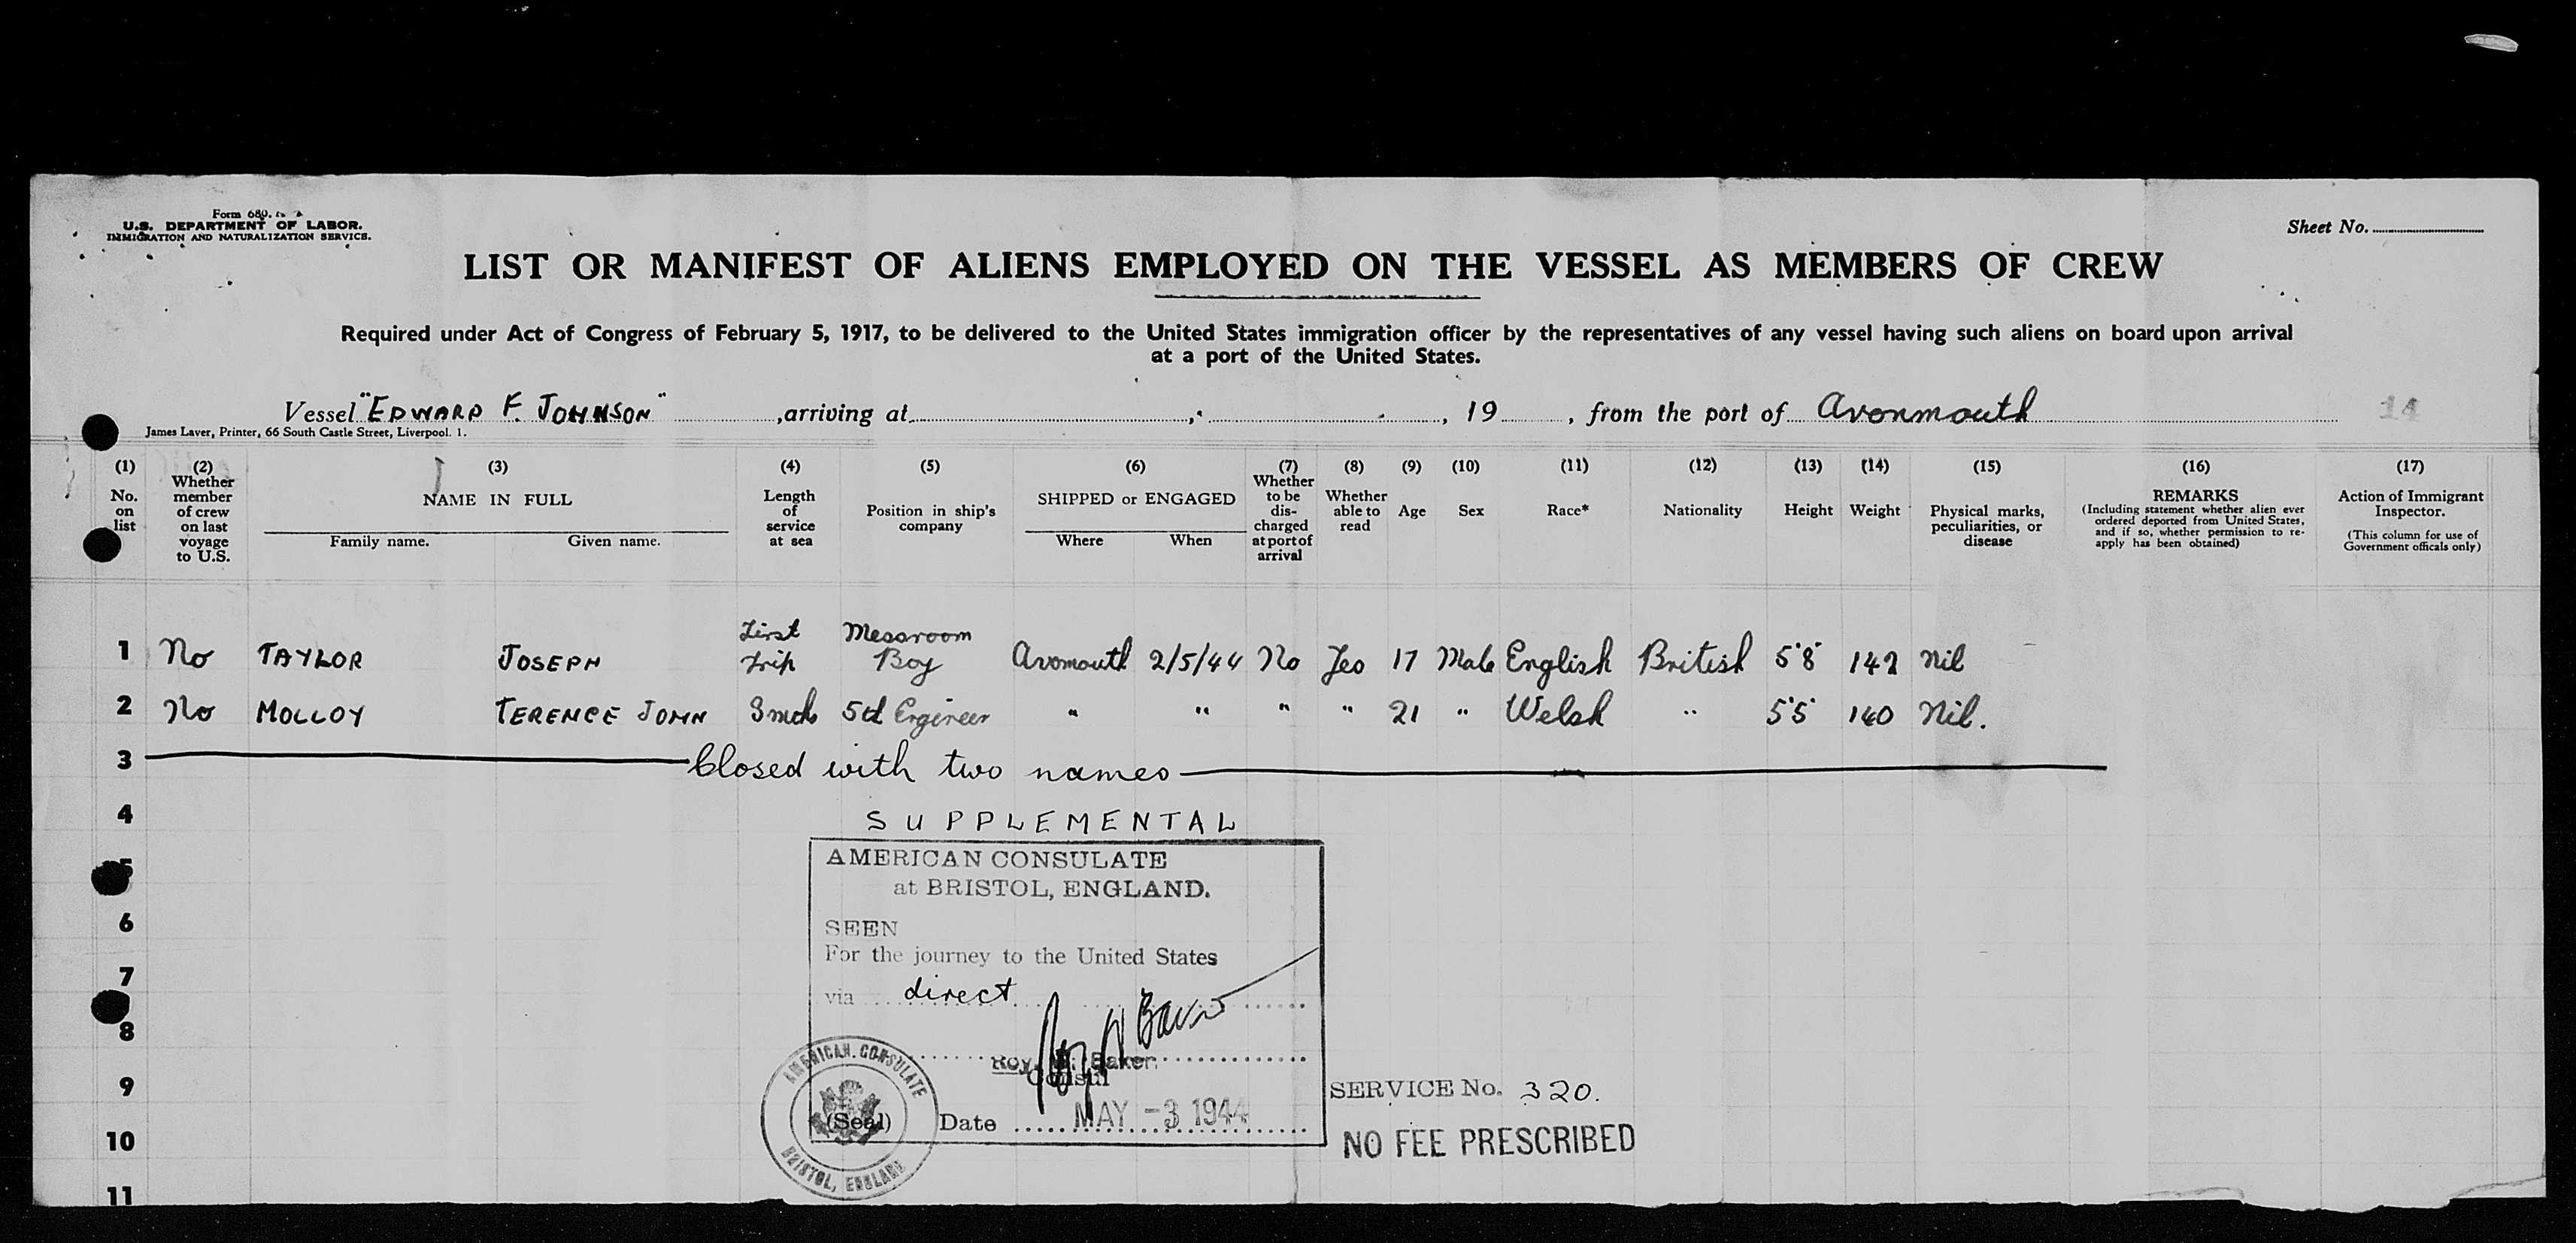 Form 689.
U.S. DEPARTMENT OF LABOR.
IMMIGRATION AND NATURALIZATION SERVICE.
Sheet No.
LIST OR MANIFEST OF ALIENS EMPLOYED ON THE VESSEL AS MEMBERS OF CREW
Required under Act of Congress of February 5, 1917, to be delivered to the United States immigration officer by the representatives of any vessel having such aliens on board upon arrival
at a port of the United States.
Vessel "EDWARD F. JOHNSON", arriving at, , 19, from the port of Avonmouth 14
James Laver, Printer, 66 South Castle Street, Liverpool. 1.
(1) No. on list
(2) Whether member of crew on last voyage to U.S.
(3) NAME IN FULL Family name. Given name.
(4) Length of service at sea
(5) Position in ship's company
(6) SHIPPED or ENGAGED Where When
(7) Whether to be discharged at port of arrival
(8) Whether able to read
(9) Age
(10) Sex
(11) Race*
(12) Nationality
(13) Height
(14) Weight
(15) Physical marks, peculiarities, or disease
(16) REMARKS (Including statement whether alien ever ordered deported from United States, and if so, whether permission to re-apply has been obtained)
(17) Action of Immigrant Inspector. (This column for use of Government officals only)
1 No TAYLOR JOSEPH First Trip Messroom Boy Avomouth 2/5/44 No Yes 17 Male English British 5'8" 142 Nil
2 No MOLLOY TERENCE JOHN 3 mch 5th Engineer " " " " 21 " Welsh " 5'5" 140 Nil.
3 Closed with two names
4 SUPPLEMENTAL
5
6
7
8
9
10
11
AMERICAN CONSULATE
at BRISTOL, ENGLAND.
SEEN
For the journey to the United States
via direct
Roy Baker
Consul
(Seal) Date MAY -3 1944
AMERICAN CONSULATE
BRISTOL, ENGLAND
SERVICE No. 320.
NO FEE PRESCRIBED